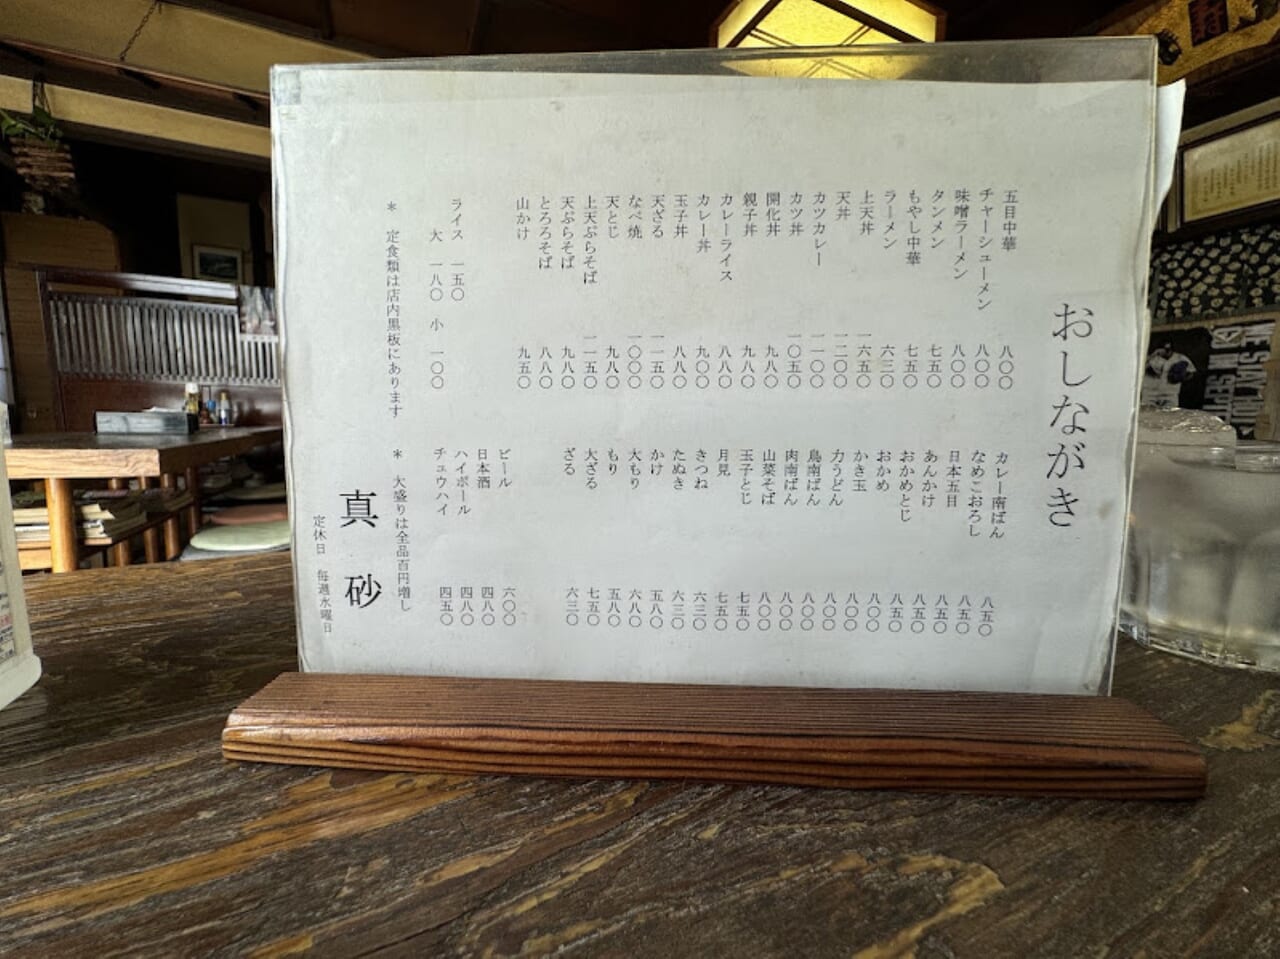 おしながき
五目中華 八〇〇
チャーシューメン 八〇〇
味噌ラーメン 八〇〇
タンメン 七五〇
もやし中華 七五〇
ラーメン 六三〇
上天丼 一六五〇
天丼 一二〇〇
カツカレー 一一〇〇
カツ丼 一〇五〇
開化丼 九八〇
親子丼 九八〇
カレーライス 八八〇
カレー丼 九〇〇
玉子丼 八八〇
天ざる 一一五〇
なべ焼 一〇〇〇
天とじ 九八〇
上天ぷらそば 一一五〇
天ぷらそば 九八〇
とろろそば 八八〇
山かけ 九五〇
ライス 一五〇
大 一八〇 小 一〇〇
カレー南ばん 八五〇
なめこおろし 八五〇
日本五目 八五〇
あんかけ 八五〇
おかめとじ 八五〇
おかめ 八〇〇
かき玉 八〇〇
力うどん 八〇〇
鳥南ばん 八〇〇
肉南ばん 八〇〇
山菜そば 八〇〇
玉子とじ 七五〇
月見 七五〇
きつね 六三〇
たぬき 六三〇
かけ 五八〇
大もり 六八〇
もり 五八〇
大ざる 七五〇
ざる 六三〇
ビール 六〇〇
日本酒 四八〇
ハイボール 四八〇
チュウハイ 四五〇
* 定食類は店内黒板にあります * 大盛りは全品百円増し
真砂
定休日 毎週水曜日